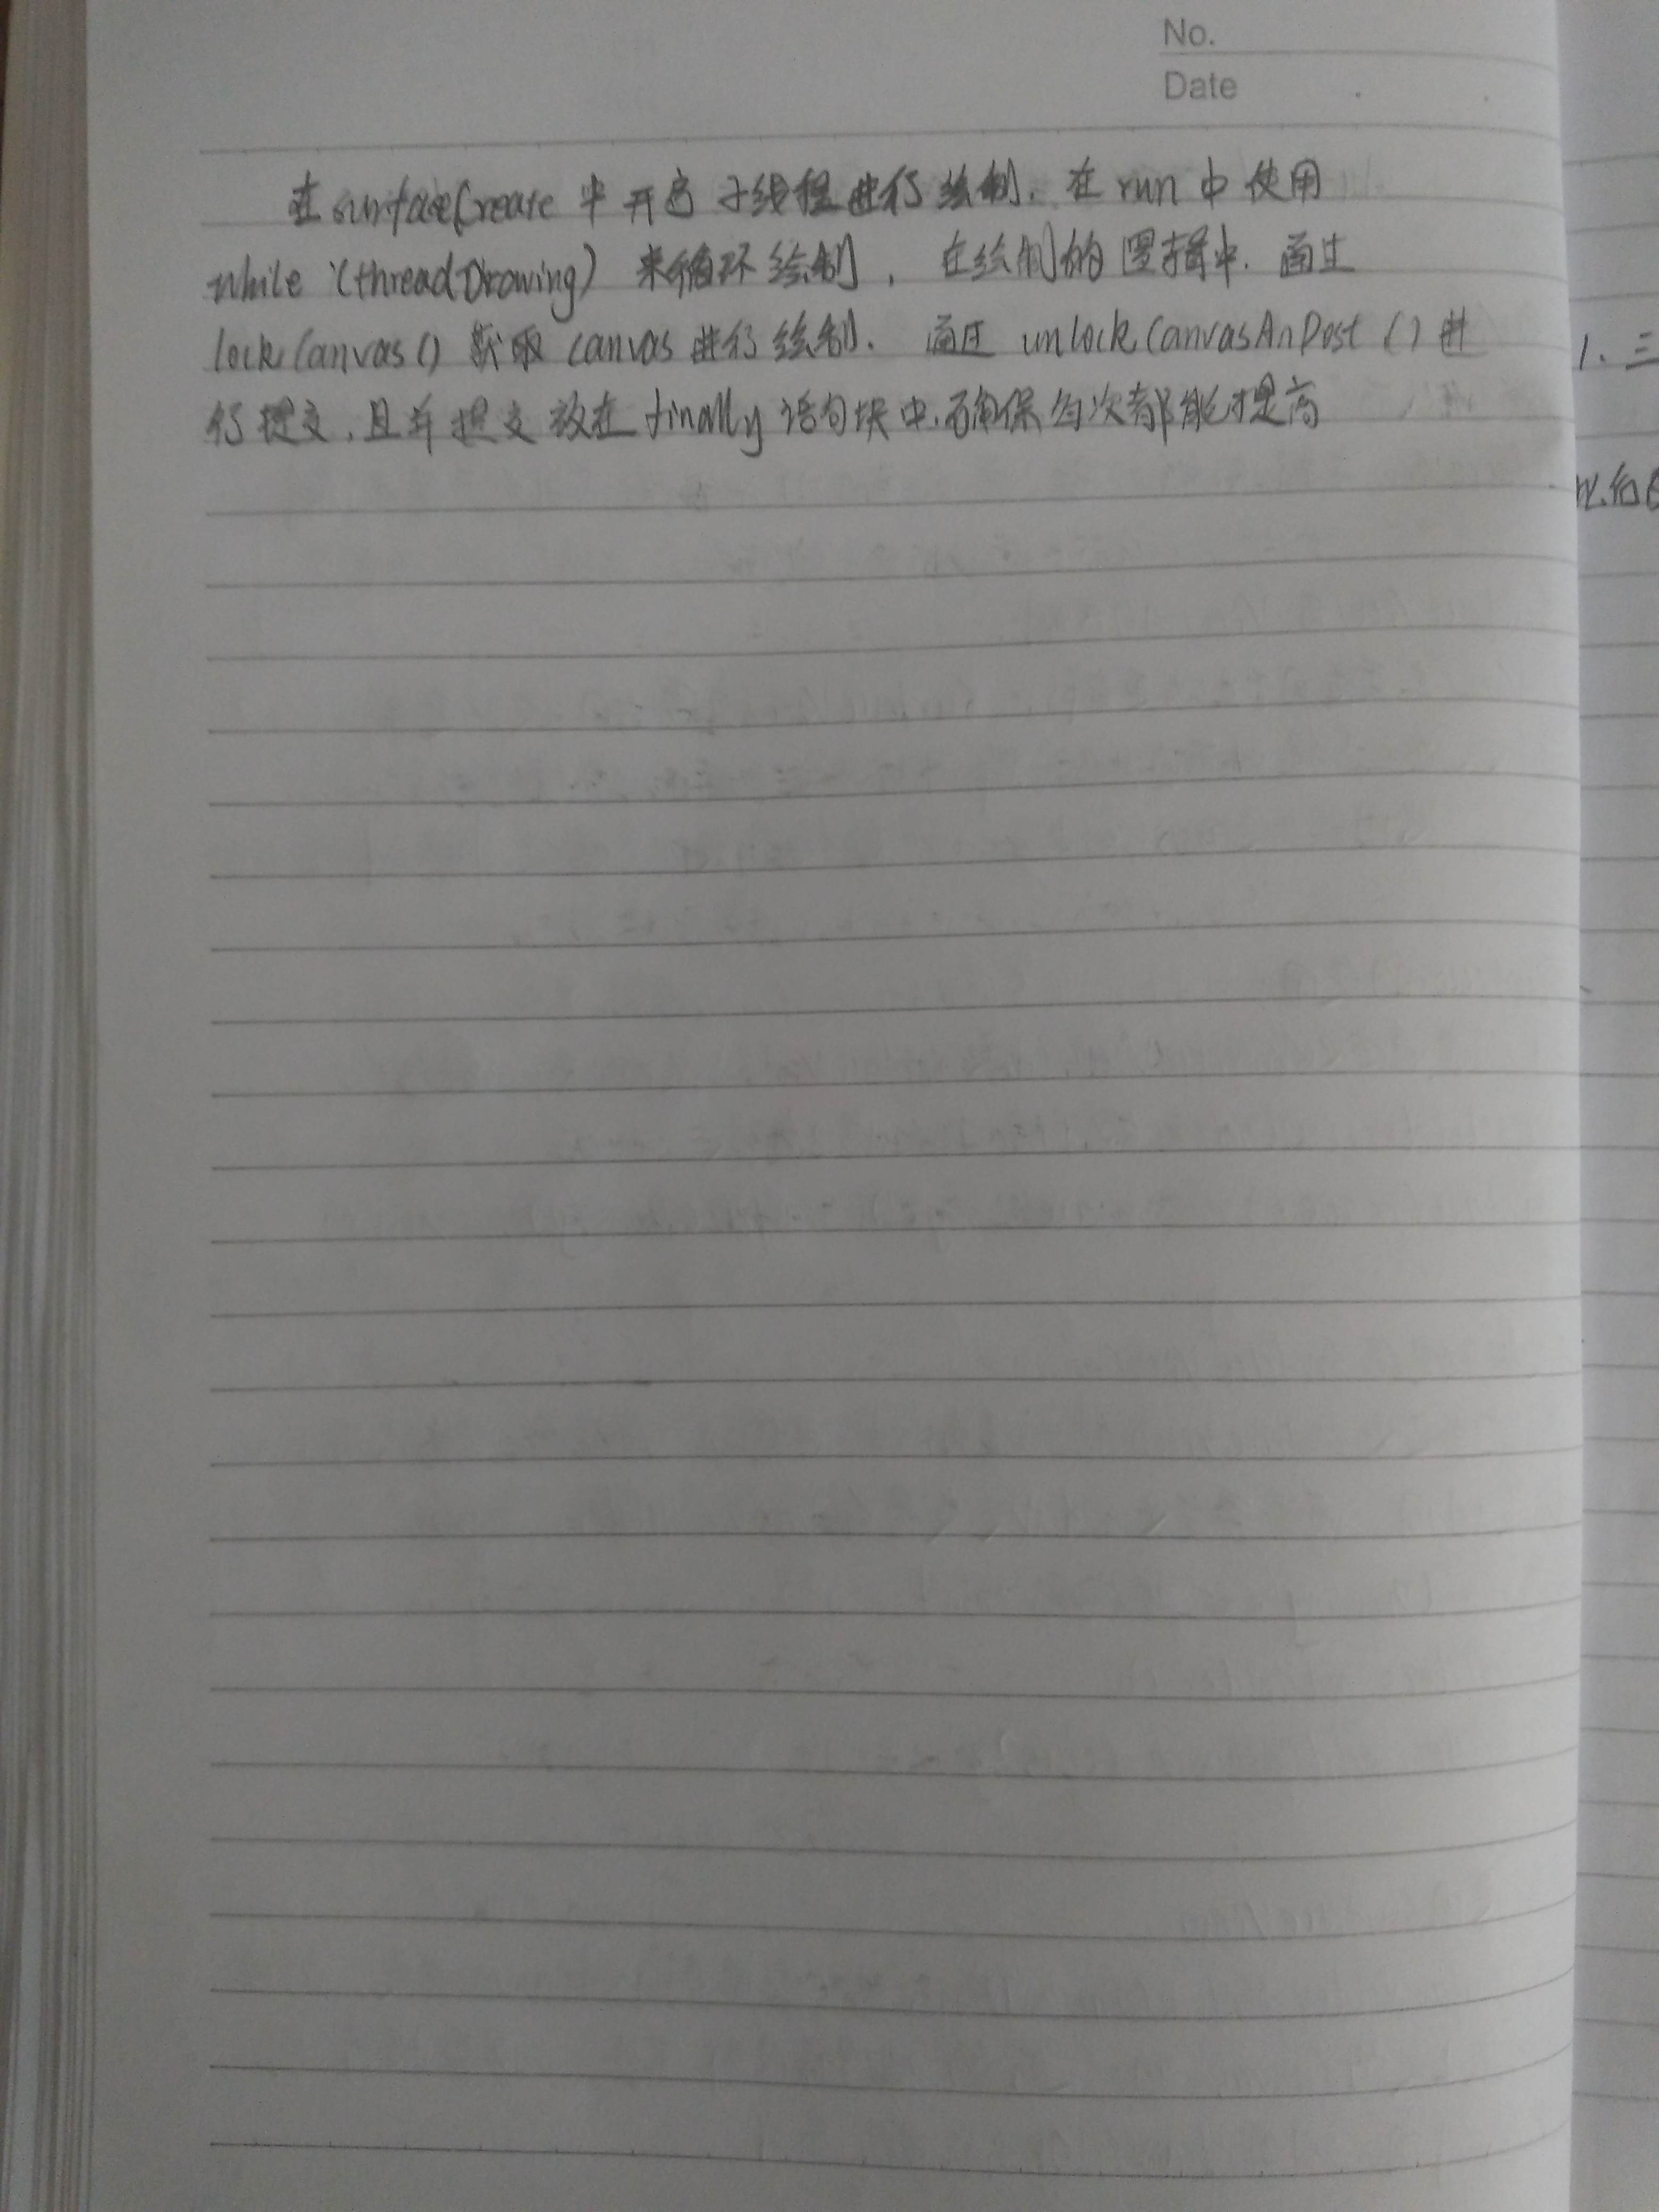 No.
Date
在surfaceCreate中开启子线程进行绘制. 在run中使用
while (threadDrawing) 来循环绘制, 在绘制的逻辑中. 通过
lockCanvas() 获取canvas进行绘制. 通过 unlockCanvasAnPost () 进
行提交. 且并提交放在finally语句块中. 确保每次都能提高
1. 三